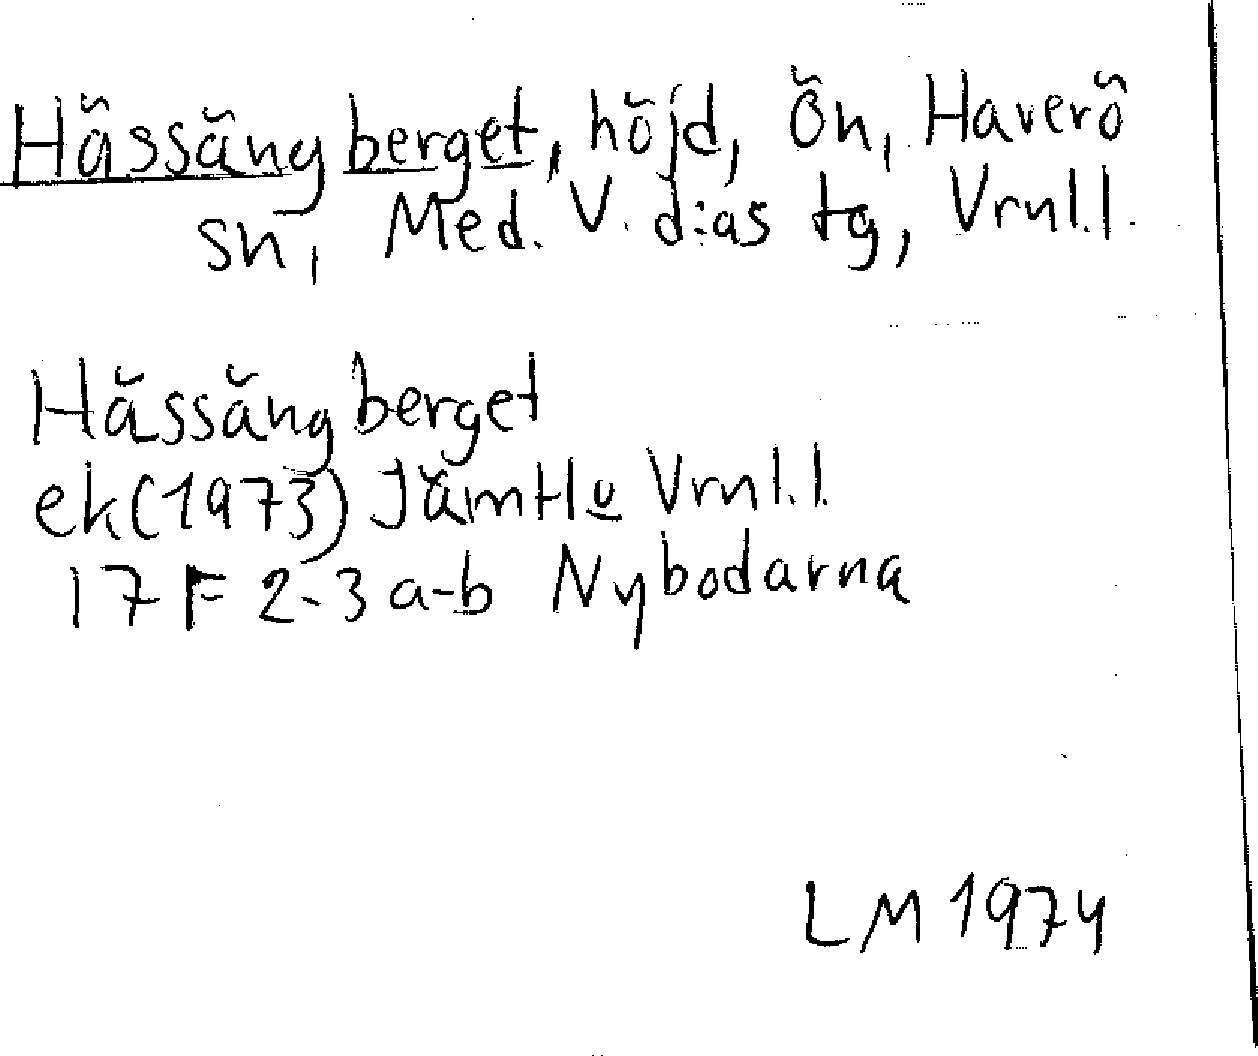 Hässängberget, höjd, Ön, Haverö
sn, Med. V. d:as tg, Vrnl.l.
Hässängberget
ek(1973) JämtLu Vrnl.l.
17 F 2-3 a-b Nybodarna
LM 1974